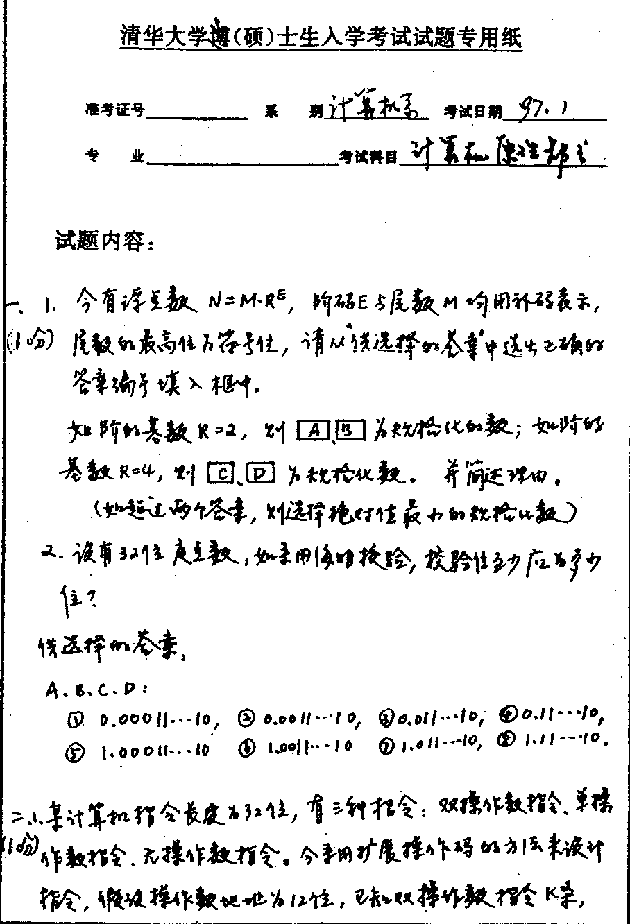 清华大学博(硕)士生入学考试试题专用纸
准考证号 系 别 计算机系 考试日期 97.1
专 业 考试科目 计算机原理部分
试题内容:
一、1. 今有浮点数 N=M·R^E, 阶码E与尾数M均用补码表示,
(10分) 尾数的最高位为符号位, 请从"供选择的答案"中选出正确的
答案编号填入框中.
如阶的基数R=2, 则 A、B 为规格化的数; 如阶的
基数R=4, 则 C、D 为规格化数. 并简述理由.
(如超过两个答案, 则选择绝对值最小的规格化数)
2. 设有32位定点数, 如采用海明校验, 校验位至少应为多少
位?
供选择的答案:
A、B、C、D:
① 0.00011···10, ② 0.0011···10, ③ 0.011···10, ④ 0.11···10,
⑤ 1.00011···10 ⑥ 1.0011···10 ⑦ 1.011···10, ⑧ 1.11···10.
二、1. 某计算机指令长度为32位, 有三种指令: 双操作数指令、单操
(10分) 作数指令、无操作数指令。今采用扩展操作码的方法来设计
指令, 假设操作数地址为12位, 已知双操作数指令K条,